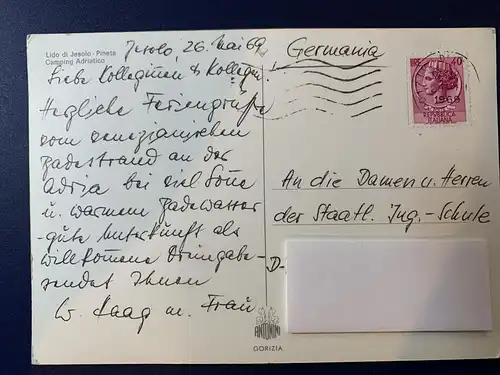 Lido di Jesolo - Pineta
Camping Adriatico
Jesolo, 26. Mai 69
Liebe Kolleginnen & Kollegen!
Herzliche Feriengrüße
vom venezianischen
Badestrand an der
Adria bei viel Sonne
u. warmem Badewasser
- gute Unterkunft als
willkommene Dreingabe -
sendet Ihnen
W. Haag m. Frau
Germania
40
1969
REPVBBLICA
ITALIANA
An die Damen u. Herren
der Staatl. Ing.-Schule
D-
ANTONINI
GORIZIA